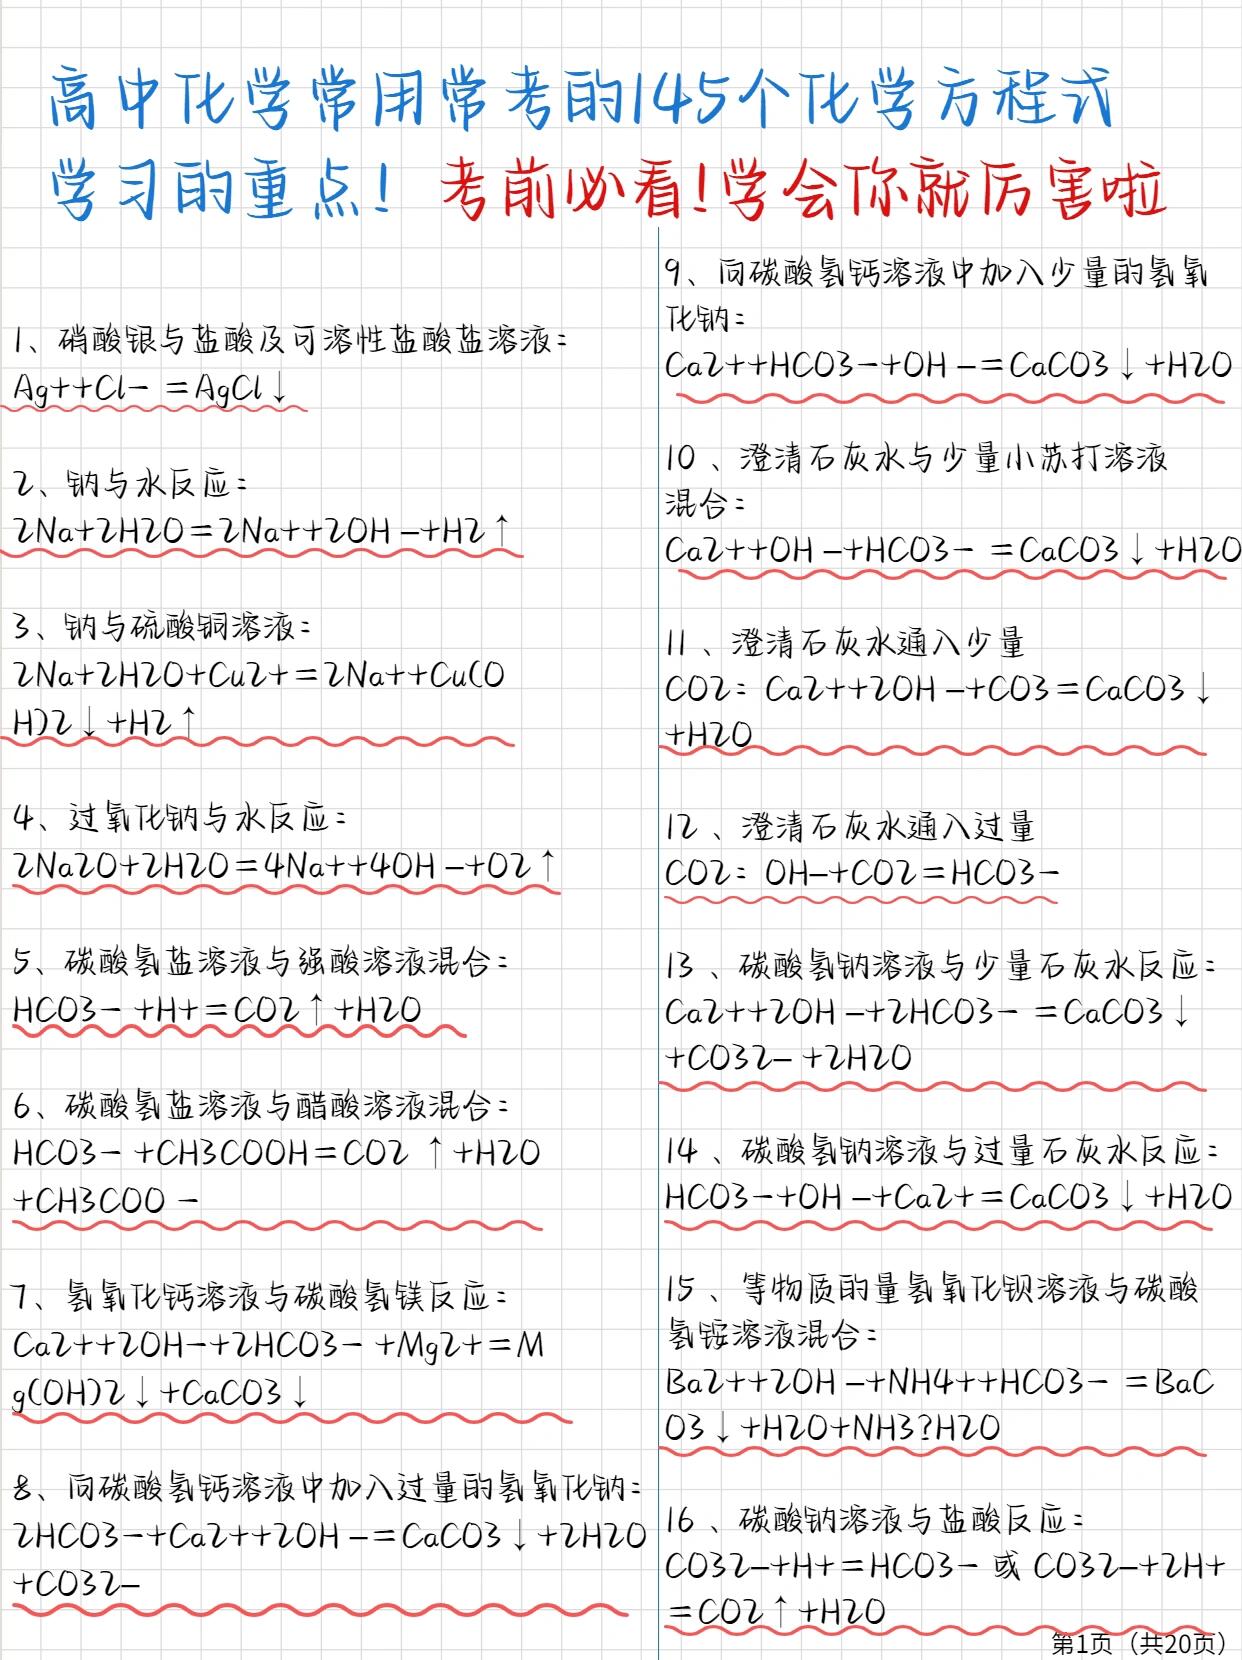 高中化学常用常考的145个化学方程式
学习的重点！ 考前必看！学会你就厉害啦
1、硝酸银与盐酸及可溶性盐酸盐溶液：
Ag++Cl- =AgCl↓
2、钠与水反应：
2Na+2H2O=2Na++2OH -+H2↑
3、钠与硫酸铜溶液：
2Na+2H2O+Cu2+=2Na++Cu(O
H)2↓+H2↑
4、过氧化钠与水反应：
2Na2O+2H2O=4Na++4OH -+O2↑
5、碳酸氢盐溶液与强酸溶液混合：
HCO3- +H+=CO2↑+H2O
6、碳酸氢盐溶液与醋酸溶液混合：
HCO3- +CH3COOH=CO2 ↑+H2O
+CH3COO -
7、氢氧化钙溶液与碳酸氢镁反应：
Ca2++2OH-+2HCO3- +Mg2+=M
g(OH)2↓+CaCO3↓
8、向碳酸氢钙溶液中加入过量的氢氧化钠：
2HCO3-+Ca2++2OH -=CaCO3↓+2H2O
+CO32-
9、向碳酸氢钙溶液中加入少量的氢氧
化钠：
Ca2++HCO3-+OH -=CaCO3↓+H2O
10 、澄清石灰水与少量小苏打溶液
混合：
Ca2++OH -+HCO3- =CaCO3↓+H2O
11 、澄清石灰水通入少量
CO2：Ca2++2OH -+CO3=CaCO3↓
+H2O
12 、澄清石灰水通入过量
CO2：OH-+CO2=HCO3-
13 、碳酸氢钠溶液与少量石灰水反应：
Ca2++2OH -+2HCO3- =CaCO3↓
+CO32- +2H2O
14 、碳酸氢钠溶液与过量石灰水反应：
HCO3-+OH -+Ca2+=CaCO3↓+H2O
15 、等物质的量氢氧化钡溶液与碳酸
氢铵溶液混合：
Ba2++2OH -+NH4++HCO3- =BaC
O3↓+H2O+NH3?H2O
16 、碳酸钠溶液与盐酸反应：
CO32-+H+=HCO3- 或 CO32-+2H+
=CO2↑+H2O
第1页（共20页）